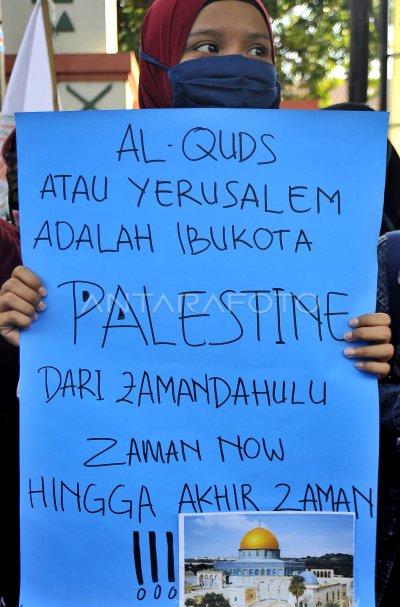 AL-QUDS
ATAU YERUSALEM
ADALAH IBUKOTA
PALESTINE
ANTARAFOTO
DARI ZAMANDAHULU
ZAMAN NOW
HINGGA AKHIR ZAMAN
!!!